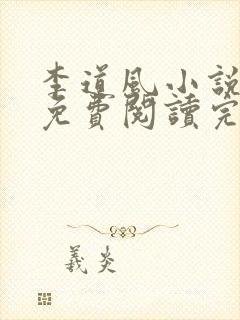 李道風小說
免費閱讀完
義炎